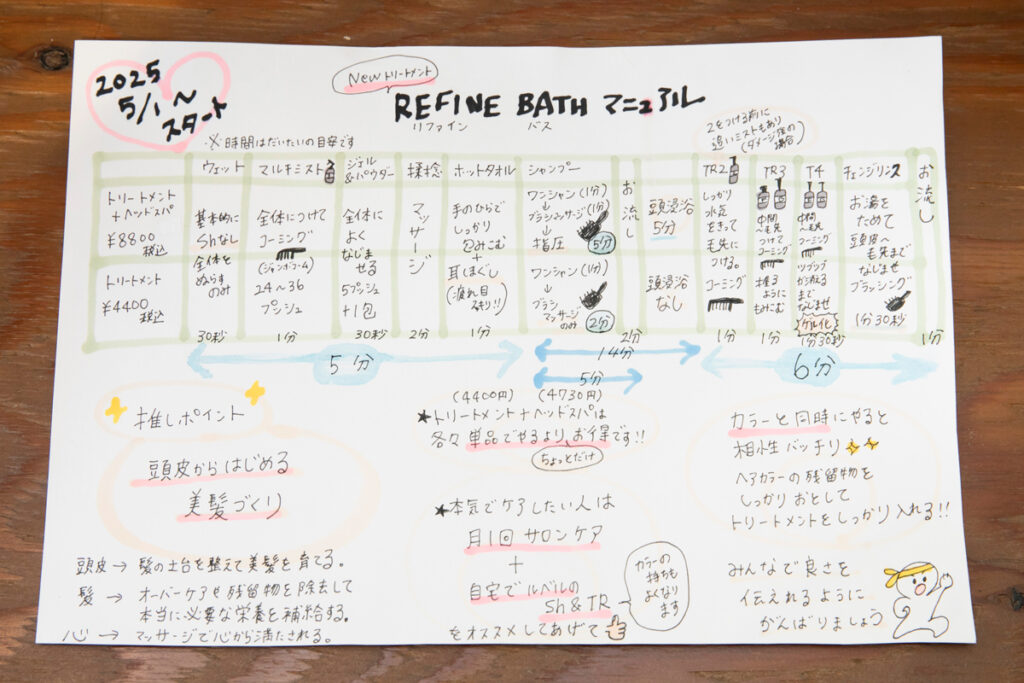 2025
5/1〜
スタート
Newトリートメント
REFINE BATH マニュアル
リファイン バス
※時間はだいたいの目安です
2をつける前に
追いミストもあり
(ダメージ毛の
場合)
ウェット
マルチミスト
ジェル
&パウダー
揉捻
ホットタオル
シャンプー
お流し
TR2
TR3
T4
チェンジリンス
お流し
トリートメント
+ヘッドスパ
¥8800
税込
トリートメント
¥4400
税込
基本的に
Shなし
全体を
ぬらす
のみ
30秒
全体につけて
コーミング
(ジャンボコーム)
24〜36
プッシュ
1分
全体に
よく
なじま
せる
5プッシュ
+1包
30秒
マッサージ
2分
手のひらで
しっかり
包みこむ
+
耳ほぐし
(疲れ目
スキリ!!)
1分
ワンシャン(1分)
↓
ブラシマッサージ(1分)
↓
指圧
5分
ワンシャン(1分)
↓
ブラシ
マッサージ
のみ
2分
2分
頭浸浴
5分
頭浸浴
なし
しっかり
水気
をきって
毛先に
つける。
コーミング
1分
中間
〜毛先
つけて
コーミング
握る
ように
もみこむ
1分
中間
〜毛先
コーミング
ツブツブ
が消える
まで
なじませ
ゲル化
1分30秒
お湯を
ためて
頭皮へ
毛先まで
なじませ
ブラッシング
1分30秒
1分
5分
14分
5分
6分
推しポイント
頭皮からはじめる
美髪づくり
頭皮→髪の土台を整えて美髪を育てる。
髪→オーバーケアや残留物を除去して
本当に必要な栄養を補給する。
心→マッサージで心から満たされる。
(4400円) (4730円)
★トリートメント+ヘッドスパは
各々単品でやるより、お得です!!
ちょっとだけ
★本気でケアしたい人は
月1回サロンケア
+
自宅でルベルの
Sh&TR
をオススメしてあげて
カラーの
持ちも
よくなり
ます
カラーと同時にやると
相性バッチリ
ヘアカラーの残留物を
しっかりおとして
トリートメントをしっかり入れる!!
みんなで良さを
伝えれるように
がんばりましょう